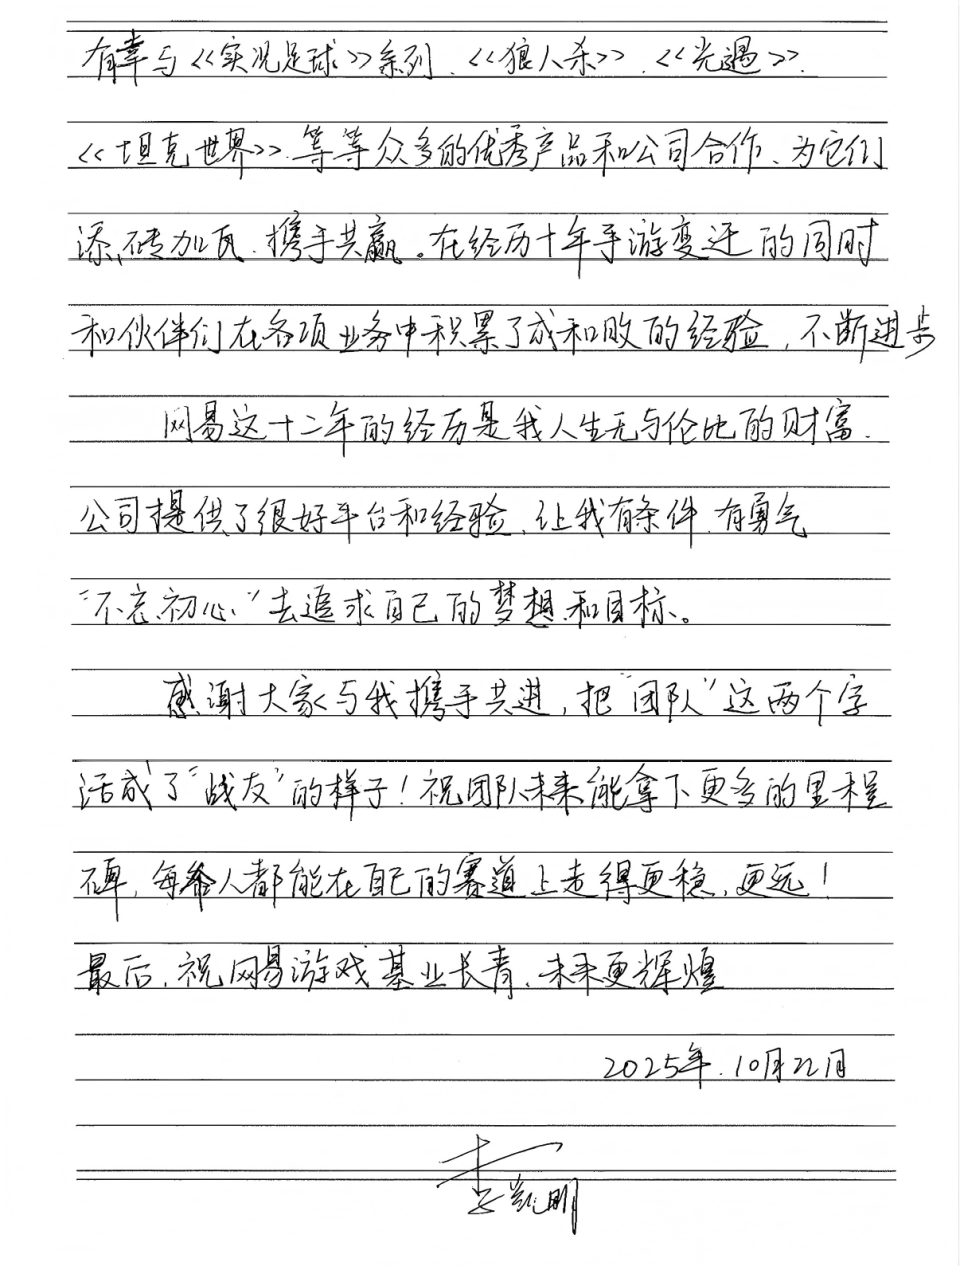 有幸与《实况足球》系列、《狼人杀》、《光遇》、
《坦克世界》等等众多的优秀产品和公司合作、为它们
添砖加瓦、携手共赢。在经历十年手游变迁的同时
和伙伴们在各项业务中积累了成和败的经验，不断进步
网易这十二年的经历是我人生无与伦比的财富、
公司提供了很好平台和经验、让我有条件、有勇气
“不忘初心”去追求自己的梦想和目标。
感谢大家与我携手共进，把“团队”这两个字
活成了“战友”的样子！祝团队未来能拿下更多的里程
碑，每个人都能在自己的赛道上走得更稳，更远！
最后，祝网易游戏基业长青、未来更辉煌
2025年.10月22月
李凯明